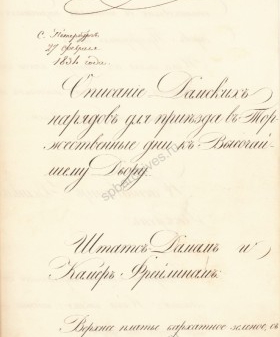 С. Петербургъ
27 февраля
1834 года.
Описание Дамскихъ
нарядовъ для приѣзда въ Тор-
жественные дни къ Высочай-
шему Двору.
Штатсъ-Дамамъ и
Камеръ-Фрейлинамъ.
Верхнее платье бархатное зеленое, съ